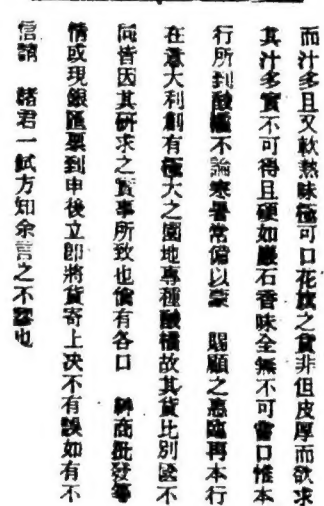 而汁多且又軟熟味極可口花旗之貨非但皮厚而欲求
其汁多實不可得且硬如巖石香味全無不可嘗口惟本
行所到酸橘不論寒暑常備以蒙 賜顧之惠臨再本行
在意大利創有極大之園地專種酸橘故其貨比別國不
同皆因其研求之實事所致也倘有各口 紳商批發等
情或現銀匯票到申後立即將貨寄上决不有誤如有不
信請 諸君一試方知余言之不謬也